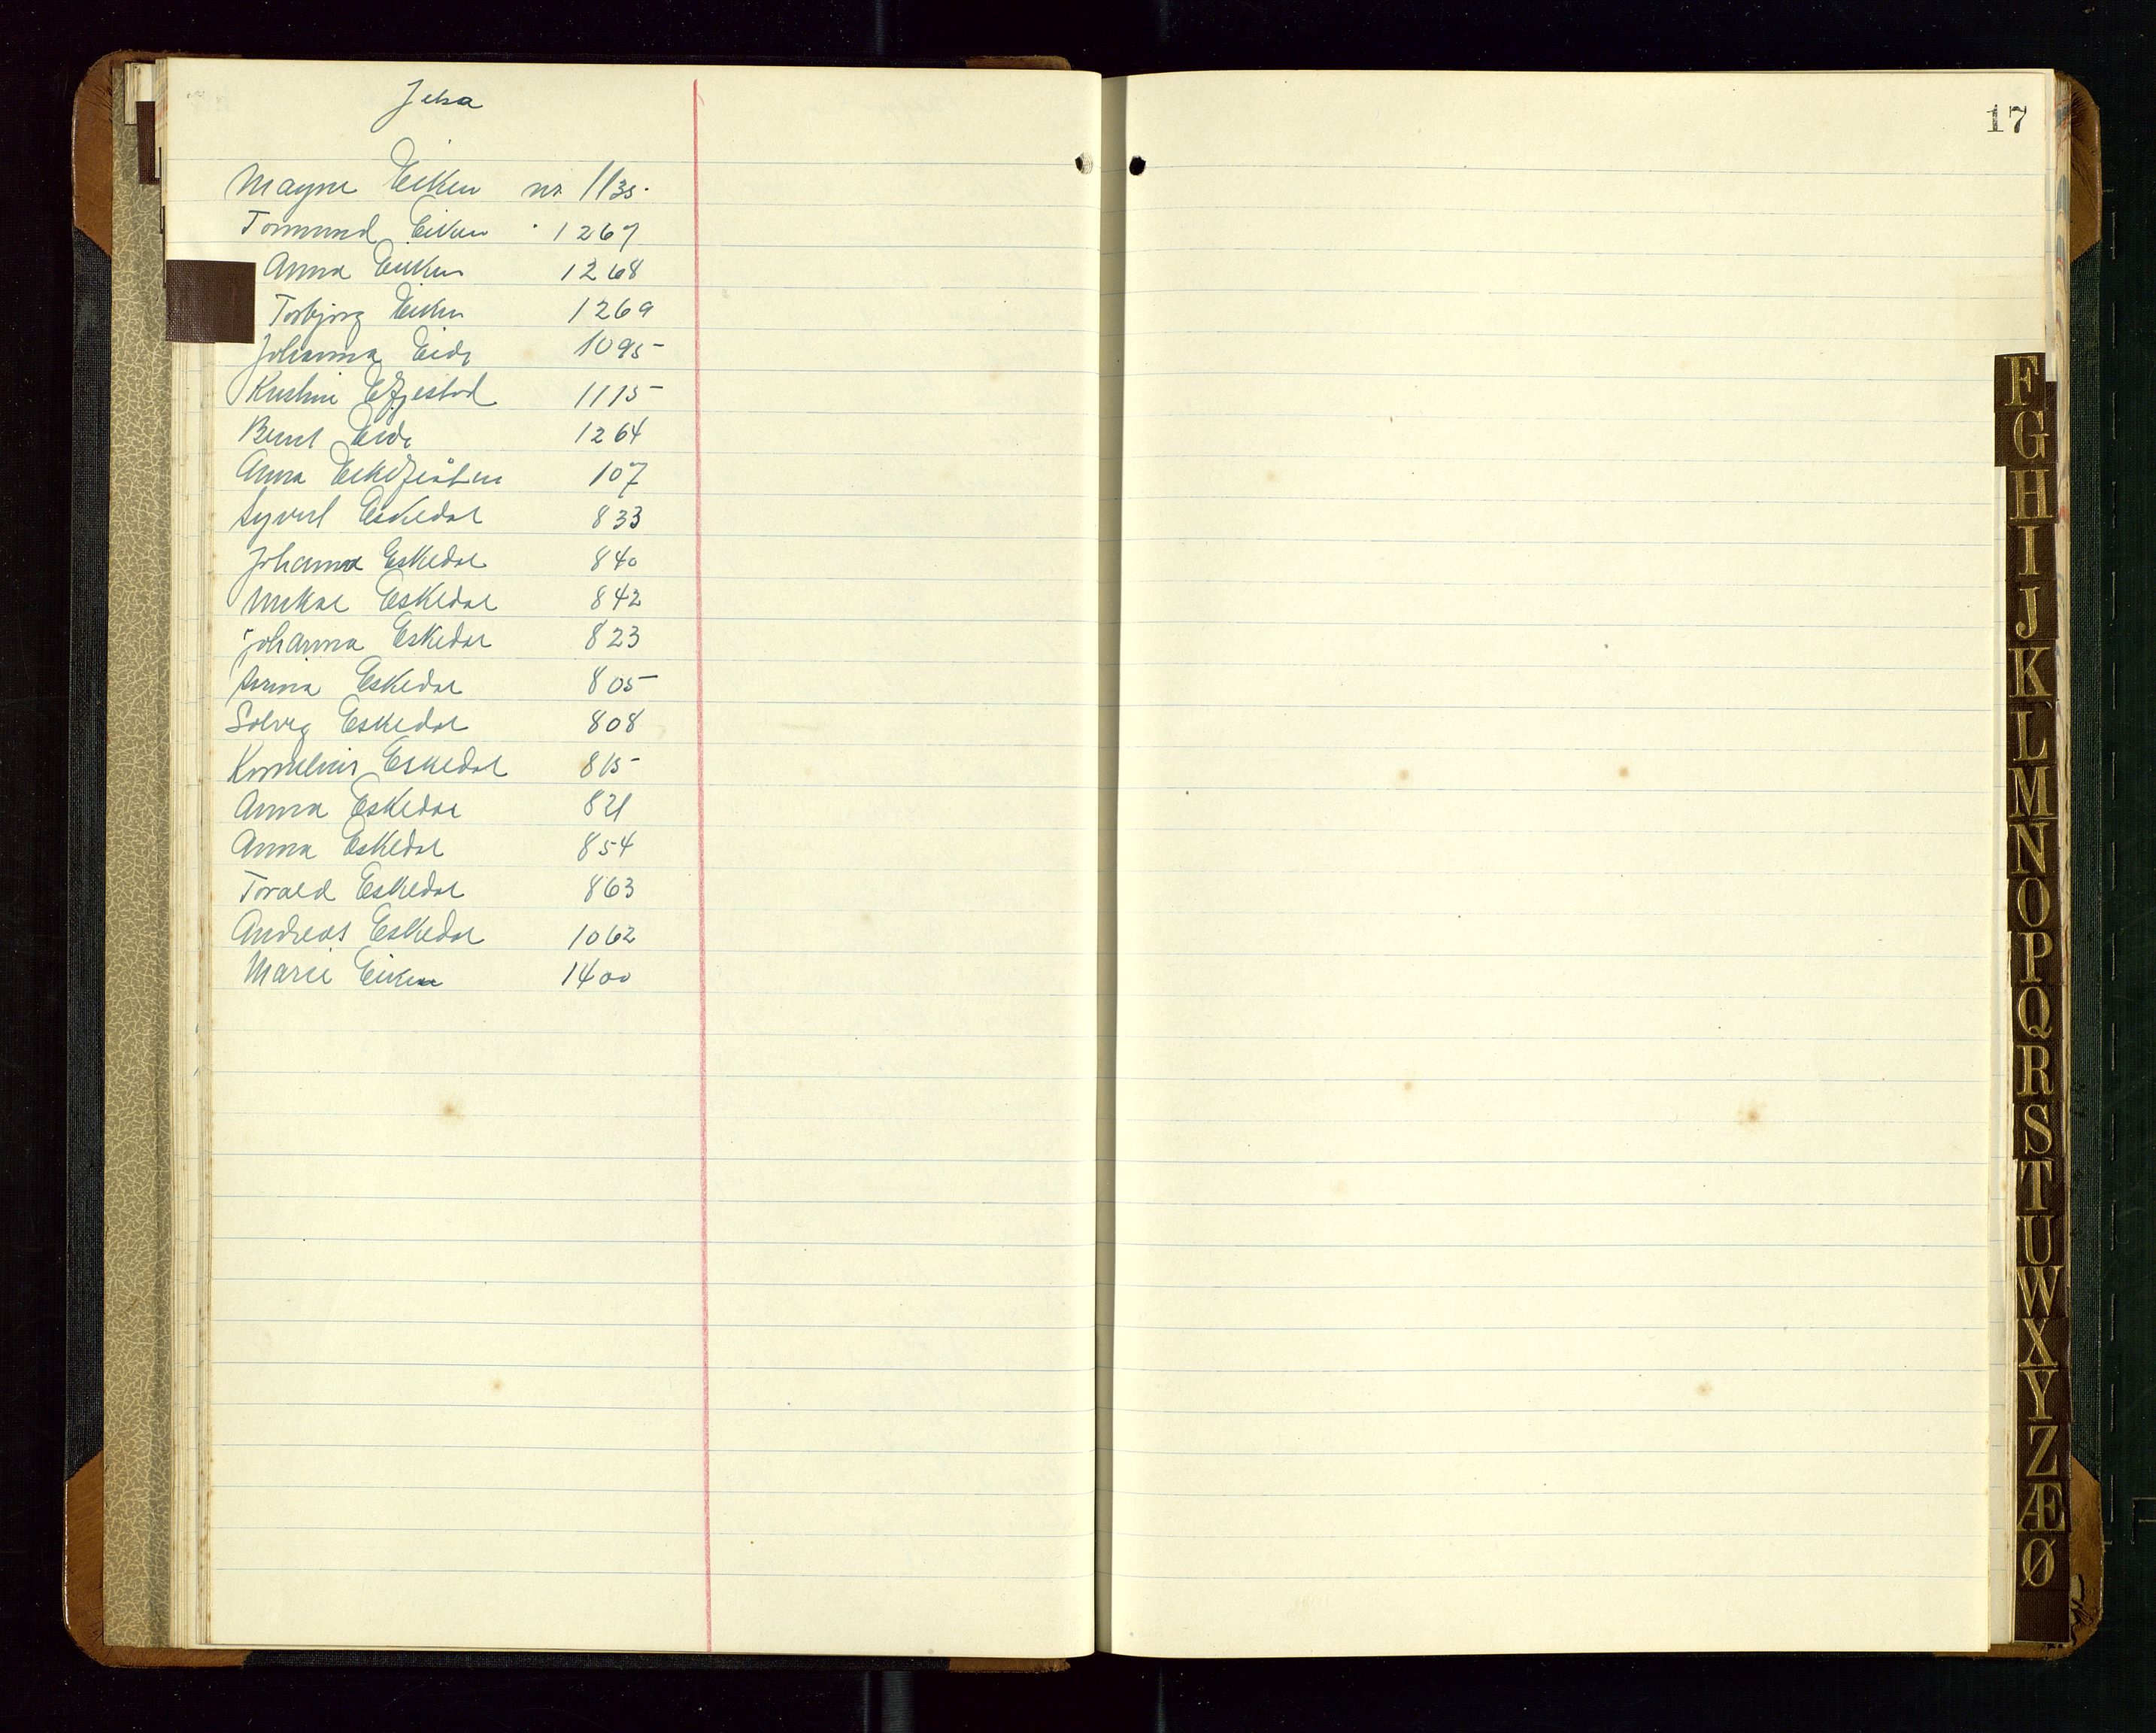 Jelsa
Magne Eiken nr. 1135.
Tormund Eiken 1267
Anna Eiken 1268
Torbjørg Eiken 1269
Johanna Eide 1095
Kristine 1115
Bernt Eide 1264
Anna 107
Syvert Eskedal 833
Johanna Eskedal 840
Mikal Eskedal 842
Johanna Eskedal 823
Eskedal 805
Solveg Eskedal 808
Kornelius Eskedal 815
Anna Eskedal 821
Anna Eskedal 854
Torald Eskedal 863
Andreas Eskedal 1062
Marie Eiken 1400
17
F
G
H
I
J
K
L
M
N
O
P
Q
R
S
T
U
W
X
Y
Z
Æ
Ø